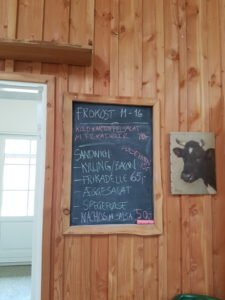 FROKOST 11-16
KOLD KARTOFFELSALAT
M. FRIKADELLER
SANDWICH
- KYLLING/BACON
- FRIKADELLE 65,-
- ÆGGESALAT
- SPEGEPØLSE
- NACHOS M SALSA 50,-